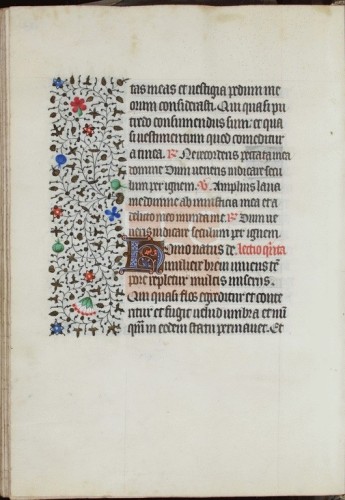 tas meas et uestigia pedum me
orum considerasti. Qui quasi pu
tredo consumendus sum: et qua
si uestimentum quod comeditur
a tinea. R Ne recorderis peccata mea
domine Dum ueneris iudicare secu
lum per ignem. V Amplius laua
me domine ab iniusticia mea et a
delicto meo munda me. R Dum ue
neris iudicare seculum per ignem.
Homo natus de Lectio qnta
muliere breui uiuens tem
pore repletur multis miserijs.
Qui quasi flos egreditur et conte
ritur et fugit uelud umbra et nu
qm in eodem statu permanet. Et